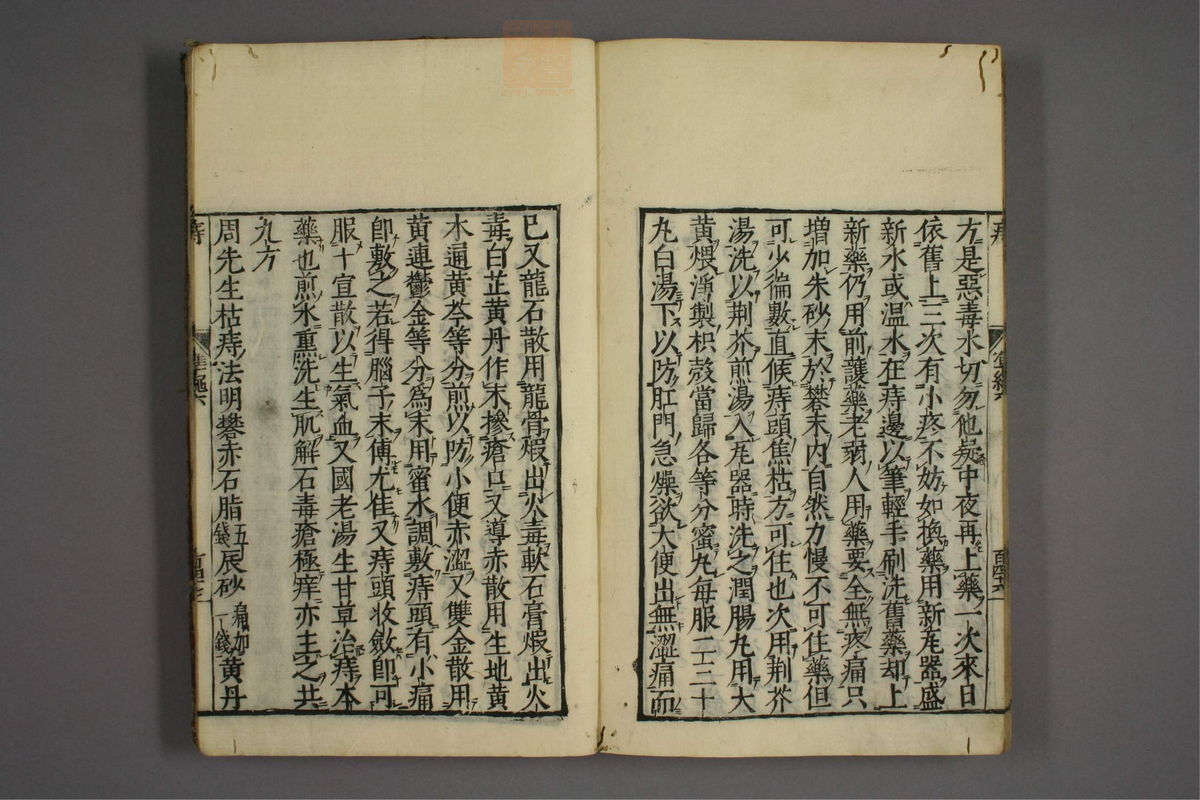 方是惡毒水切勿他疑中夜再上藥一次來日
依舊上三次有小疼不妨如換藥用新瓦器盛
新水或温水在痔邊以筆輕手刷洗舊藥却上
新藥仍用前護藥老弱人用藥要全無疼痛只
增加朱砂末於礬末内自然力慢不可住藥但
可少徧數直候痔頭焦枯方可住也次用荆芥
湯洗以荆芥煎湯入瓦器時洗之潤腸丸用大
黃煨淨製枳殼當歸各等分蜜丸每服二三十
丸白湯下以防肛門急燥欲大便出無澀痛而
已又龍石散用龍骨煅出火毒軟石膏煅出火
毒白芷黃丹作末摻瘡口又導赤散用生地黃
木通黃芩等分煎以防小便赤澀又雙金散用
黃連鬱金等分爲末用蜜水調敷痔頭有小痛
卽敷之若得腦子末傅尤佳又痔頭收斂卽可
服十宣散以生氣血又國老湯生甘草治痔本
藥也煎水熏洗生肌解石毒瘡極痒亦主之共
九方
周先生枯痔法明礬赤石脂五錢辰砂痛加一錢黃丹